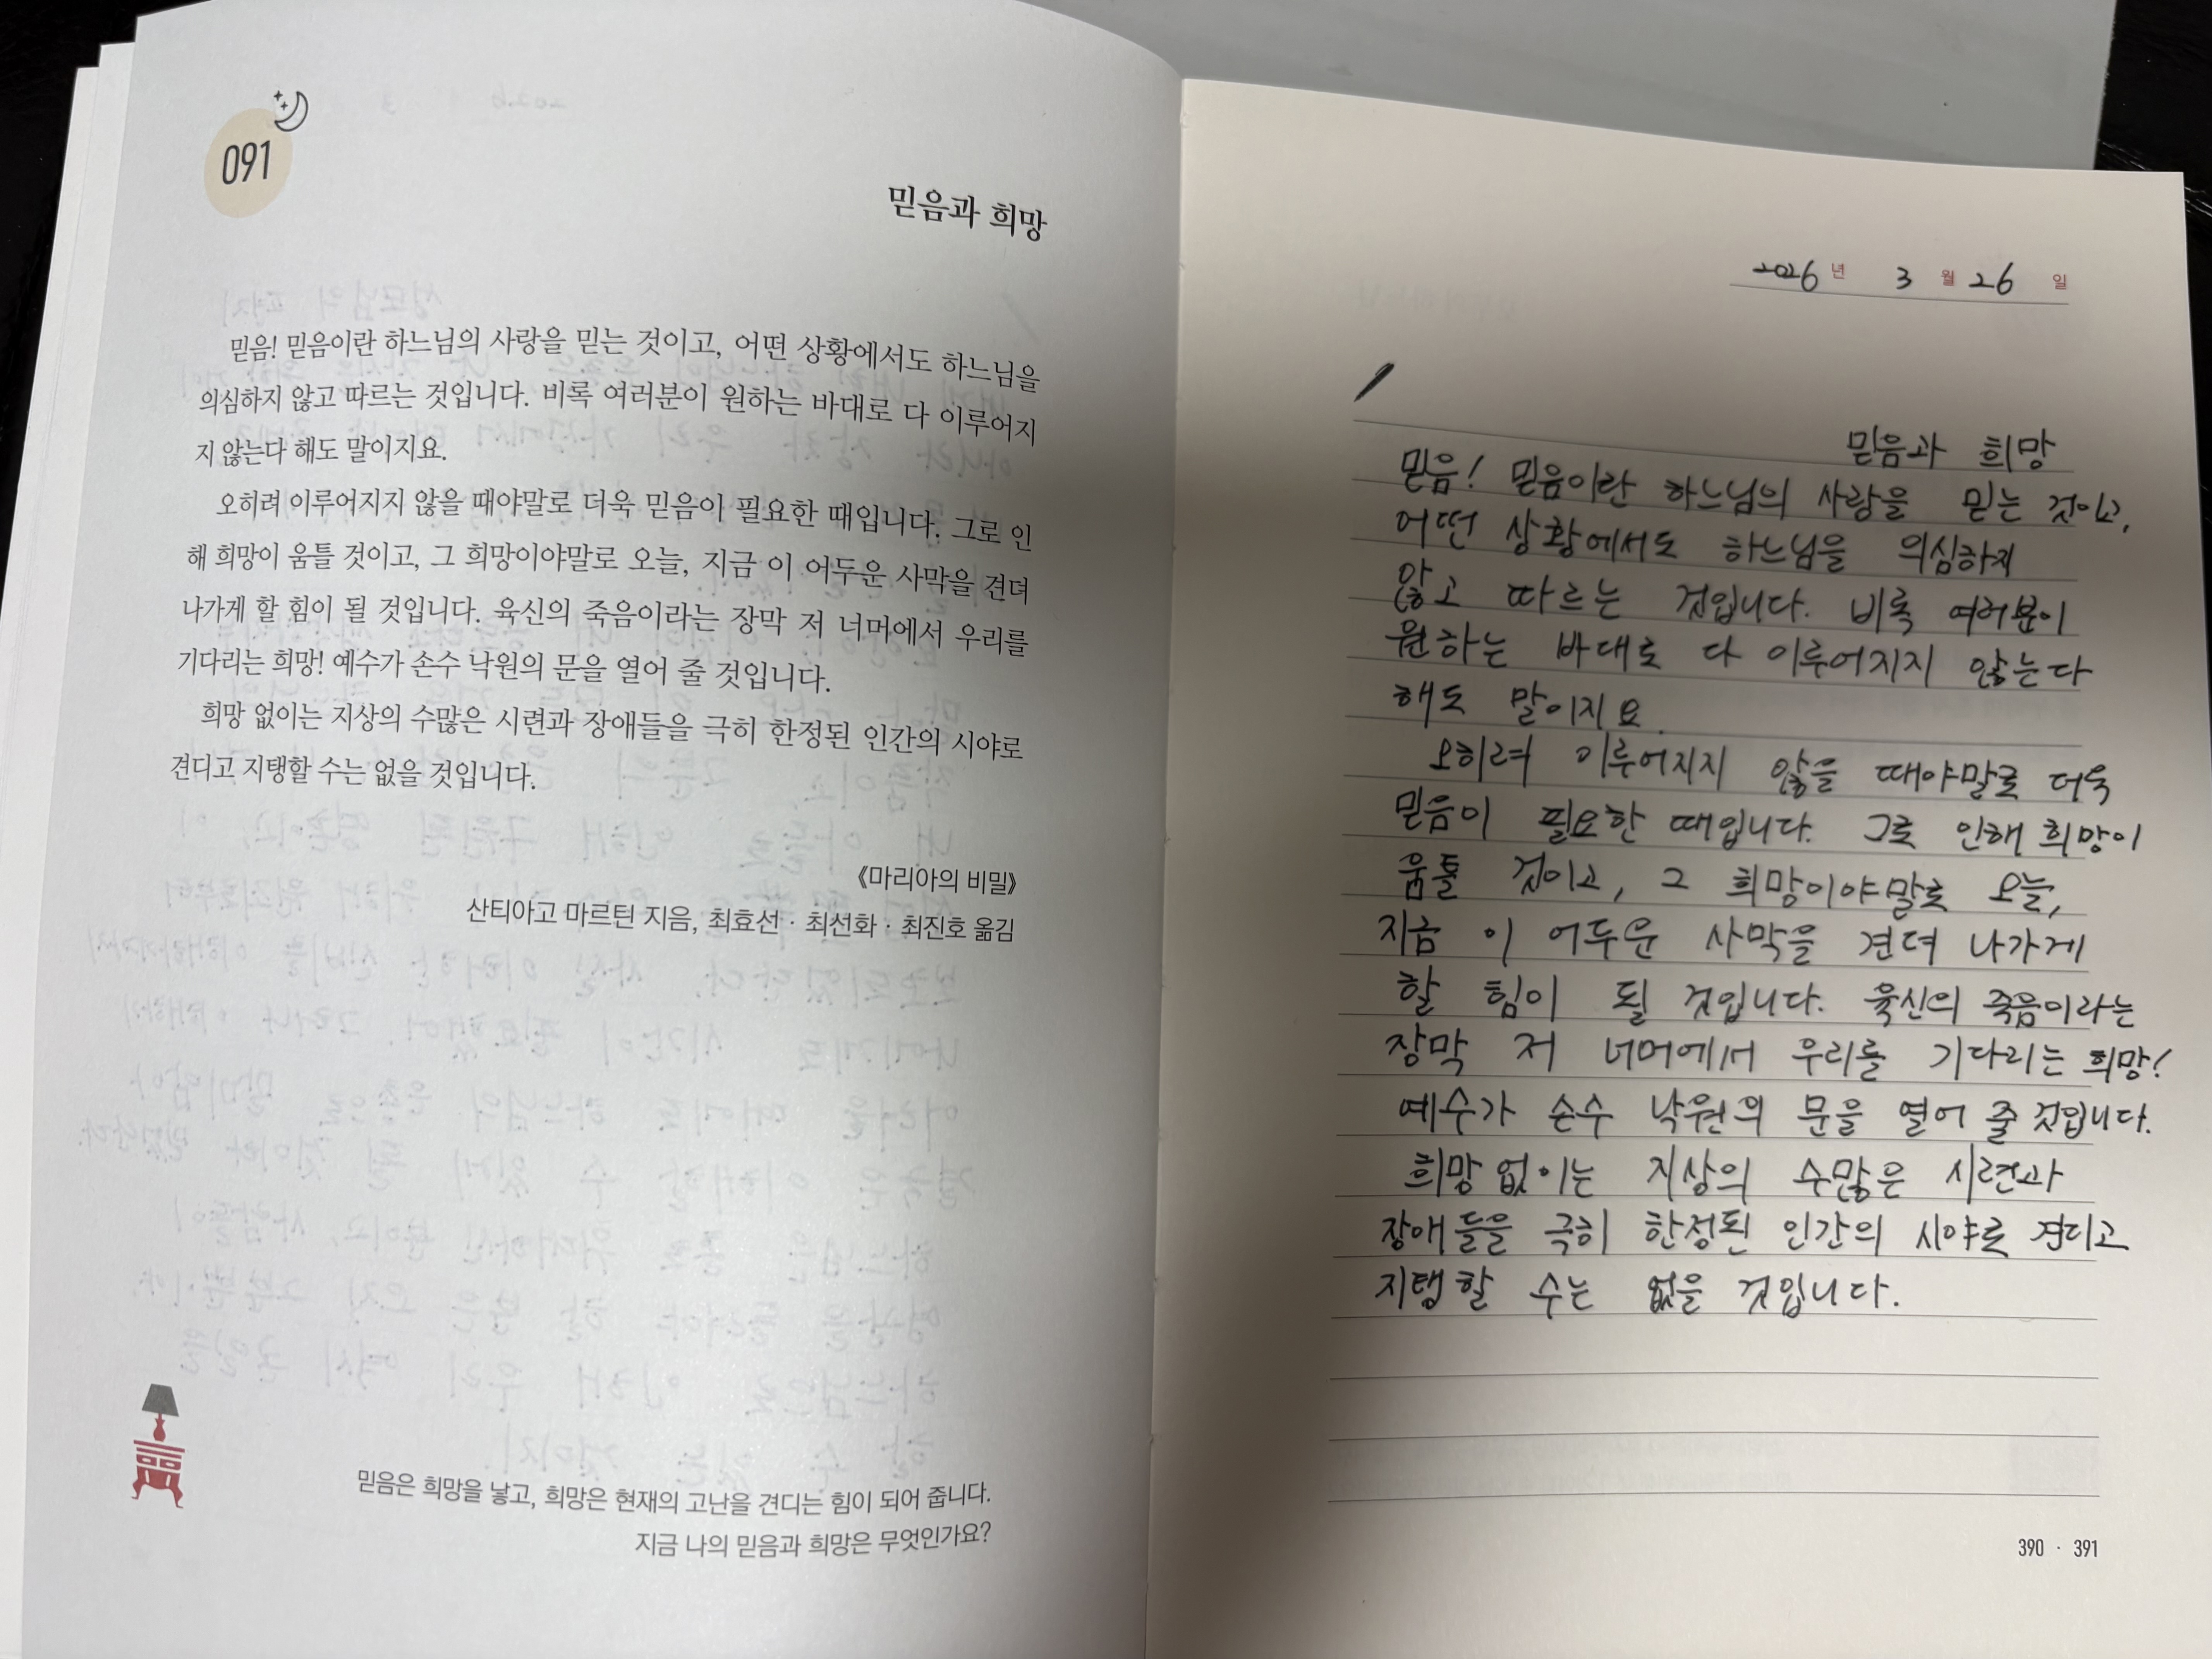 091
믿음과 희망
믿음! 믿음이란 하느님의 사랑을 믿는 것이고, 어떤 상황에서도 하느님을
의심하지 않고 따르는 것입니다. 비록 여러분이 원하는 바대로 다 이루어지
지 않는다 해도 말이지요.
오히려 이루어지지 않을 때야말로 더욱 믿음이 필요한 때입니다. 그로 인
해 희망이 움틀 것이고, 그 희망이야말로 오늘, 지금 이 어두운 사막을 견뎌
나가게 할 힘이 될 것입니다. 육신의 죽음이라는 장막 저 너머에서 우리를
기다리는 희망! 예수가 손수 낙원의 문을 열어 줄 것입니다.
희망 없이는 지상의 수많은 시련과 장애들을 극히 한정된 인간의 시야로
견디고 지탱할 수는 없을 것입니다.
《마리아의 비밀》
산티아고 마르틴 지음, 최효선 · 최선화 · 최진호 옮김
믿음은 희망을 낳고, 희망은 현재의 고난을 견디는 힘이 되어 줍니다.
지금 나의 믿음과 희망은 무엇인가요?
2026 년 3 월 26 일
믿음과 희망
믿음! 믿음이란 하느님의 사랑을 믿는 것이고,
어떤 상황에서도 하느님을 의심하지
않고 따르는 것입니다. 비록 여러분이
원하는 바대로 다 이루어지지 않는다
해도 말이지요.
오히려 이루어지지 않을 때야말로 더욱
믿음이 필요한 때입니다. 그로 인해 희망이
움틀 것이고, 그 희망이야말로 오늘,
지금 이 어두운 사막을 견뎌 나가게
할 힘이 될 것입니다. 육신의 죽음이라는
장막 저 너머에서 우리를 기다리는 희망!
예수가 손수 낙원의 문을 열어 줄 것입니다.
희망 없이는 지상의 수많은 시련과
장애들을 극히 한정된 인간의 시야로 견디고
지탱할 수는 없을 것입니다.
390 · 391